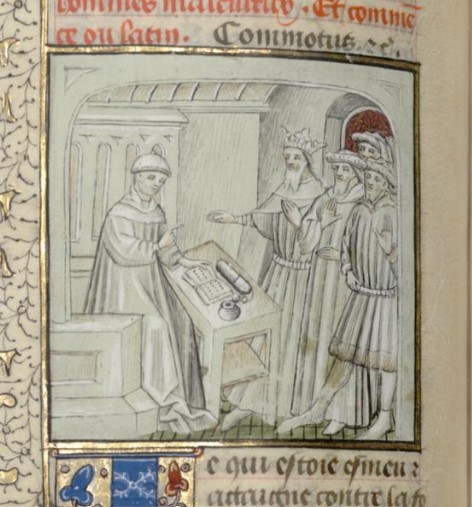 hommes maleureux. Et comme
ce ou latin. Commotus. zc.
e qui estoie esmeu z
contre la fo